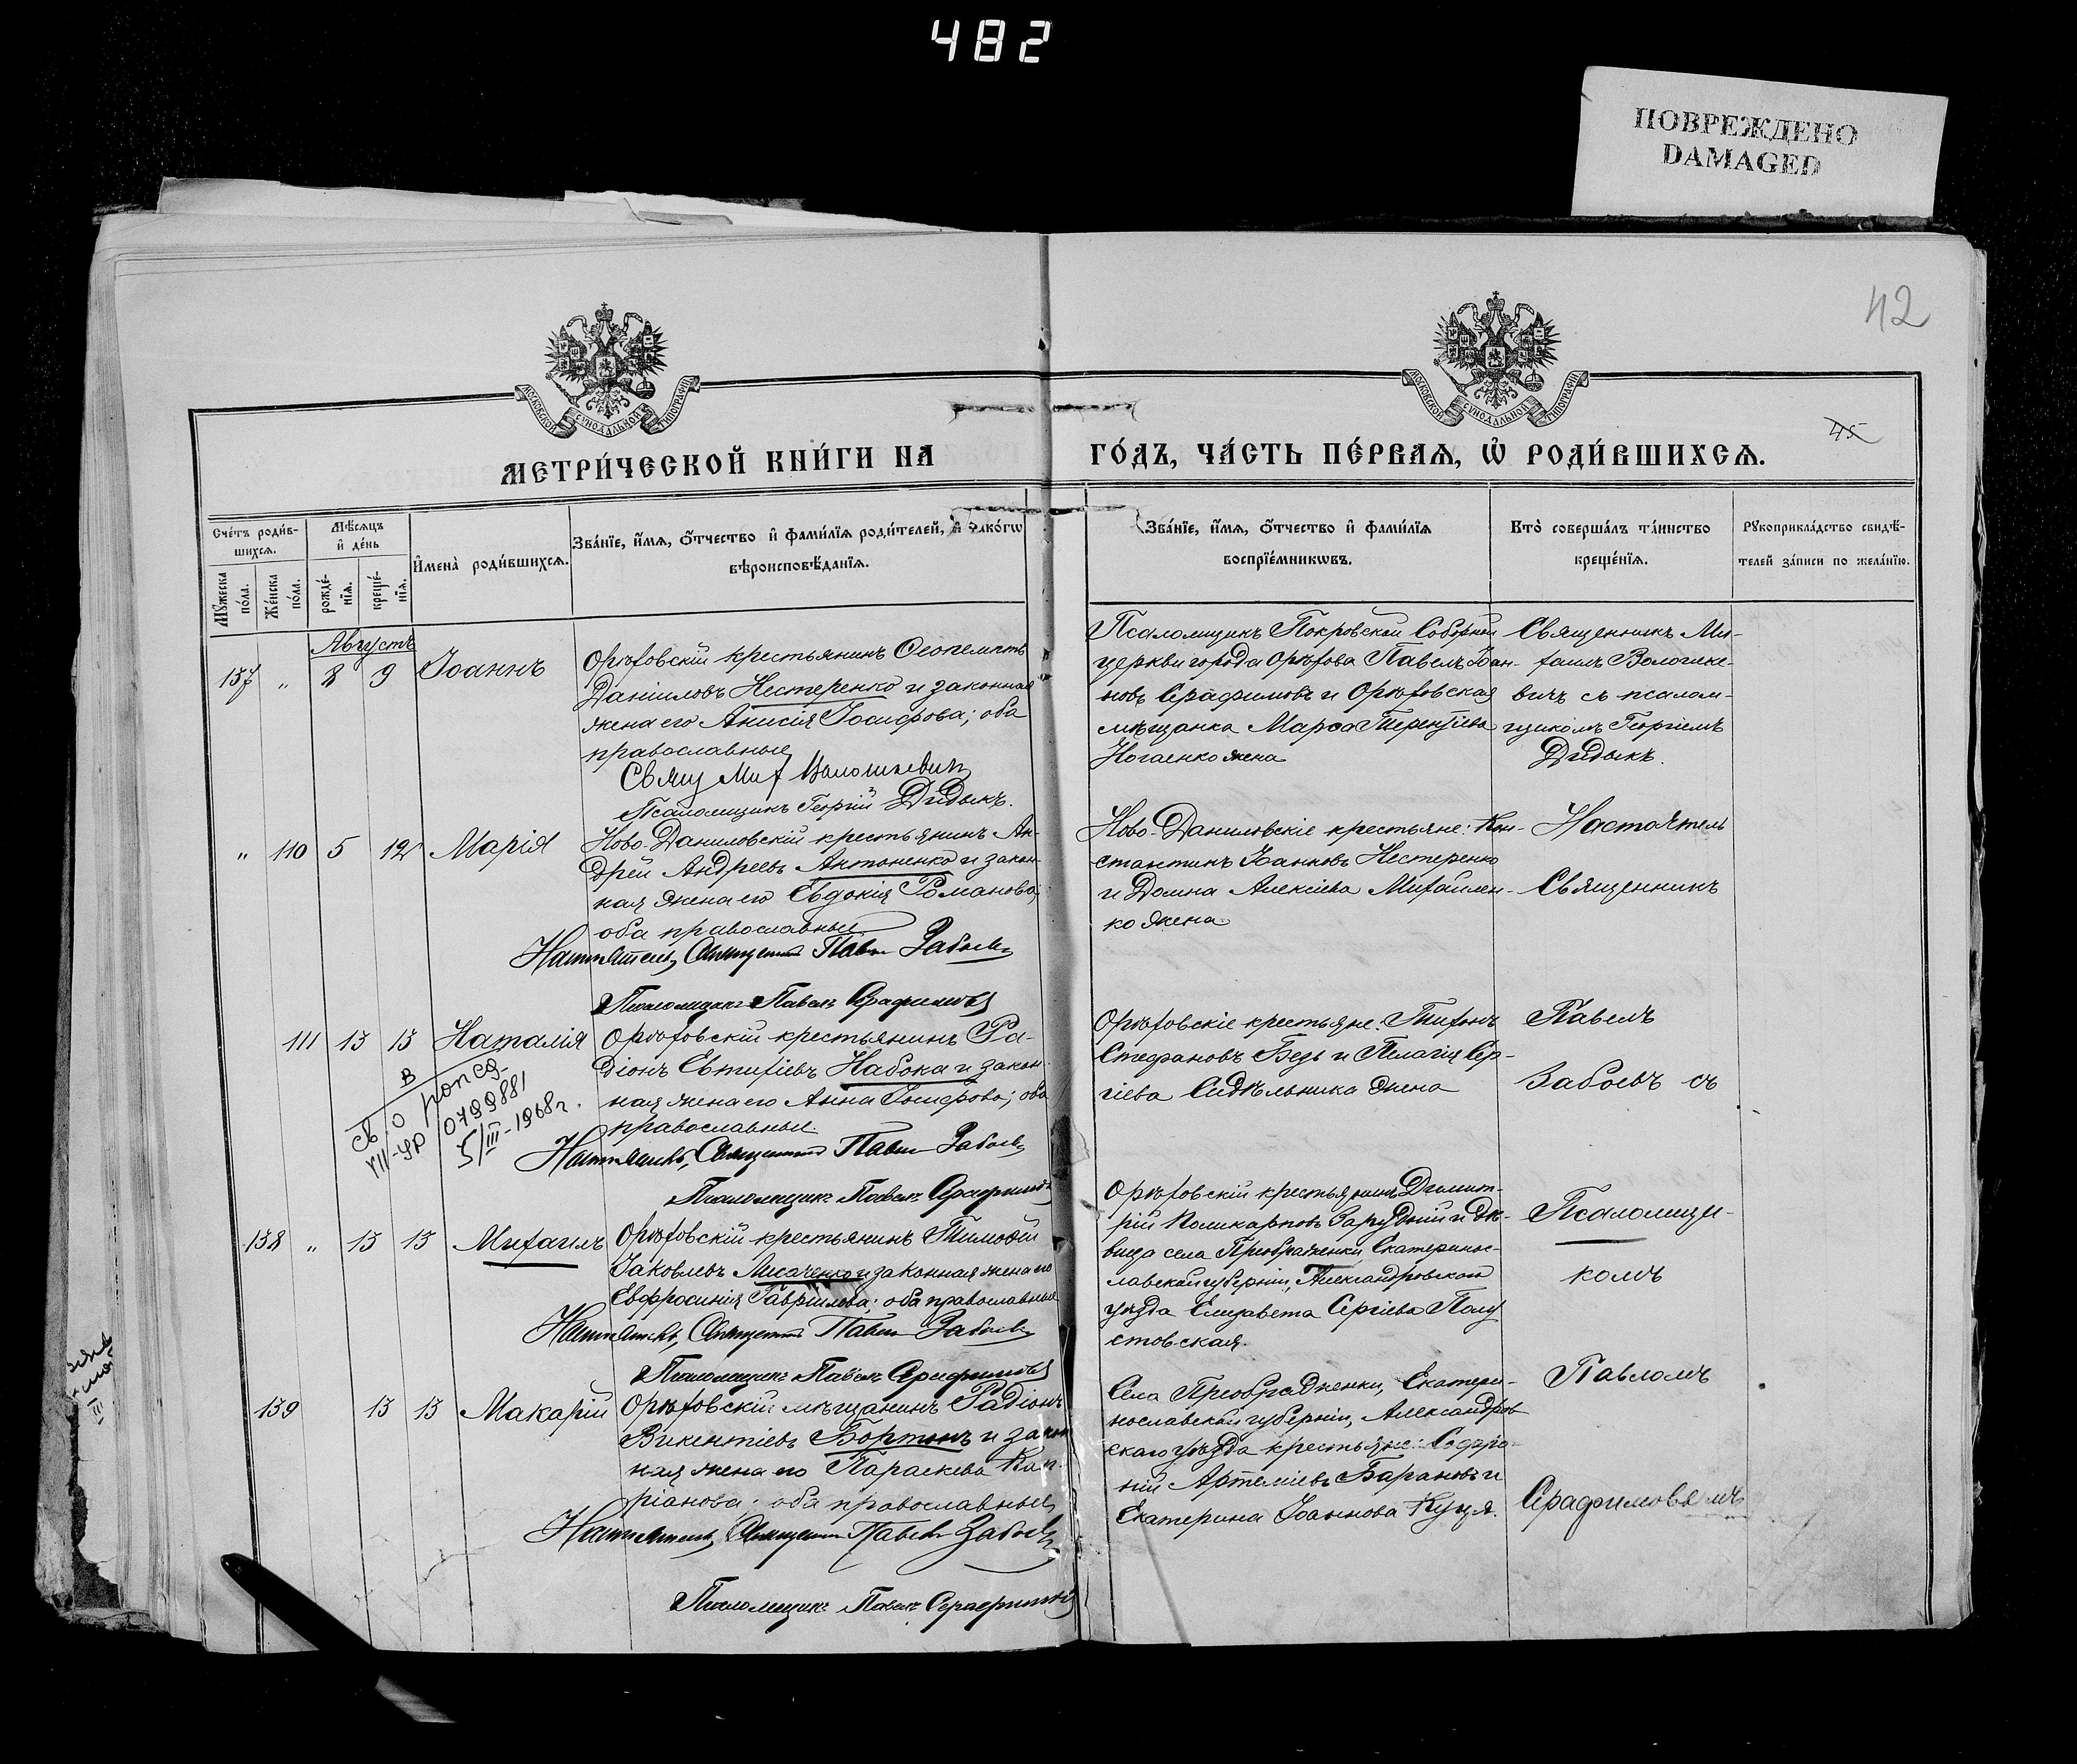 482
ПОВРЕЖДЕНО
DAMAGED
42
45
МОСКОВСКОЙ СѴНОДАЛЬНОЙ ТИПОГРАФІИ
МОСКОВСКОЙ СѴНОДАЛЬНОЙ ТИПОГРАФІИ
МЕТРИ́ЧЕСКОЙ КНИ́ГИ НА
ГО́ДЪ, ЧА́СТЬ ПЕ́РВАѦ, Ѡ҆ РОДИ́ВШИХСѦ.
Сче́тъ роди́в-
шихсѧ.
Мѣ́сѧцъ
и҆ де́нь
Мꙋ́жеска
по́ла.
Же́нска
по́ла.
рожде́-
нїѧ.
креще́-
нїѧ.
И҆мена̀ роди́вшихсѧ.
Зва́нїе, и҆́мѧ, ѻ҆́тчество и҆ фами́лїѧ роди́телей, и҆ како́гѡ
вѣроисповѣ́данїѧ.
Зва́нїе, и҆́мѧ, ѻ҆́тчество и҆ фами́лїѧ
воспрїе́мникѡвъ.
Кто̀ соверша́лъ та́инство
креще́нїѧ.
Рꙋкоприкла́дство свидѣ́-
телей за́писи по жела́нїю.
Августъ
137 „ 8 9 Іоаннъ
Орѣховскій крестьянинъ Ѳеопемптъ
Даніиловъ Нестеренко и законная
жена его Анисія Іосифова; оба
православные
Свящ. Мих. Волошкевич
Псаломщикъ Георгій Дидыкъ.
Псаломщикъ Покровской Соборной
церкви города Орѣхова Павелъ Іоан-
новъ Серафимовъ и Орѣховская
мѣщанка Марѳа Терентіева
Ногаенко жена
Священникъ Ми-
хаилъ Волошке-
вичъ съ псалом-
щикомъ Георгіемъ
Дидыкъ.
„ 110 5 12 Марія
Ново-Даниловскій крестьянинъ Ан-
дрей Андреевъ Антоненко и закон-
ная жена его Евдокія Романова;
оба православные.
Настоятель, Священникъ Павелъ Забоевъ
Псаломщикъ Павелъ Серафимовъ
Ново-Даниловскіе крестьяне: Кон-
стантинъ Іоанновъ Нестеренко
и Домна Алексіева Михайлен-
ко жена.
Настоятель
Священникъ
111 13 13 Наталія
Орѣховскій крестьянинъ Ра-
діонъ Евтихіевъ Набока и закон-
ная жена его Анна Іосифова; оба
православные.
Настоятель, Священникъ Павелъ Забоевъ
Псаломщикъ Павелъ Серафимовъ
В
св. о рожд
VII-УР 0799881
5/III-1968г.
Орѣховскіе крестьяне: Тихонъ
Стефановъ Бедь и Пелагія Сер-
гіева Сидѣльника жена
Павелъ
Забоевъ съ
138 „ 13 13 Михаилъ
Орѣховскій крестьянинъ Тимоѳей
Іаковлевъ Лисаченко и законная жена его
Евфросинія Гавріилова; оба православные
Настоятель, Священникъ Павелъ Забоевъ
Псаломщикъ Павелъ Серафимовъ
Орѣховскій крестьянинъ Димит-
рій Поликарповъ Зарудній и дѣ-
вица села Преображенки, Екатерино-
славской губерніи, Александровскаго
уѣзда Елизавета Сергіева Полу
стовская.
Псаломщи-
комъ
139 13 13 Макарій
Орѣховскій мѣщанинъ Радіонъ
Викентіевъ Бортинъ и закон
ная жена его Параскева Кип-
ріанова; оба православные,
Настоятель, Священникъ Павелъ Забоевъ
Псаломщикъ Павелъ Серафимовъ
Села Преображенки, Екатери-
нославской губерніи, Александров
скаго уѣзда крестьяне: Софро
ній Артеміевъ Барановъ и
Екатерина Іоаннова Куця.
Павломъ
Серафимовымъ